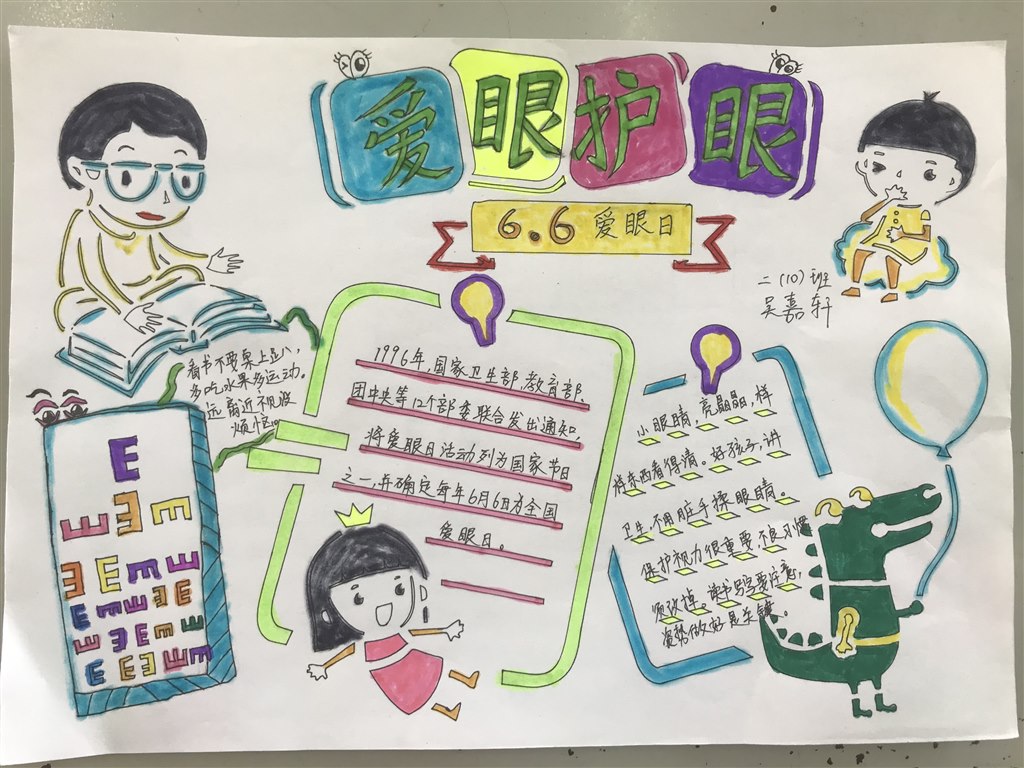 爱眼护眼
6.6 爱眼日
二(10)班
吴嘉轩
看书不要桌上趴,
多吃水果多运动。
远离近视没
烦恼。
E
E E E
E E E E
E E E E E
E E E E E
E E E E E
1996年,国家卫生部、教育部、
团中央等12个部委联合发出通知,
将爱眼日活动列为国家节日
之一,并确定每年6月6日为全国
爱眼日。
小眼睛,亮晶晶,样
样东西看得清。好孩子,讲
卫生,不用脏手揉眼睛。
保护视力很重要,不良习惯
要改掉。读书写字要注意,
姿势做好是关键。